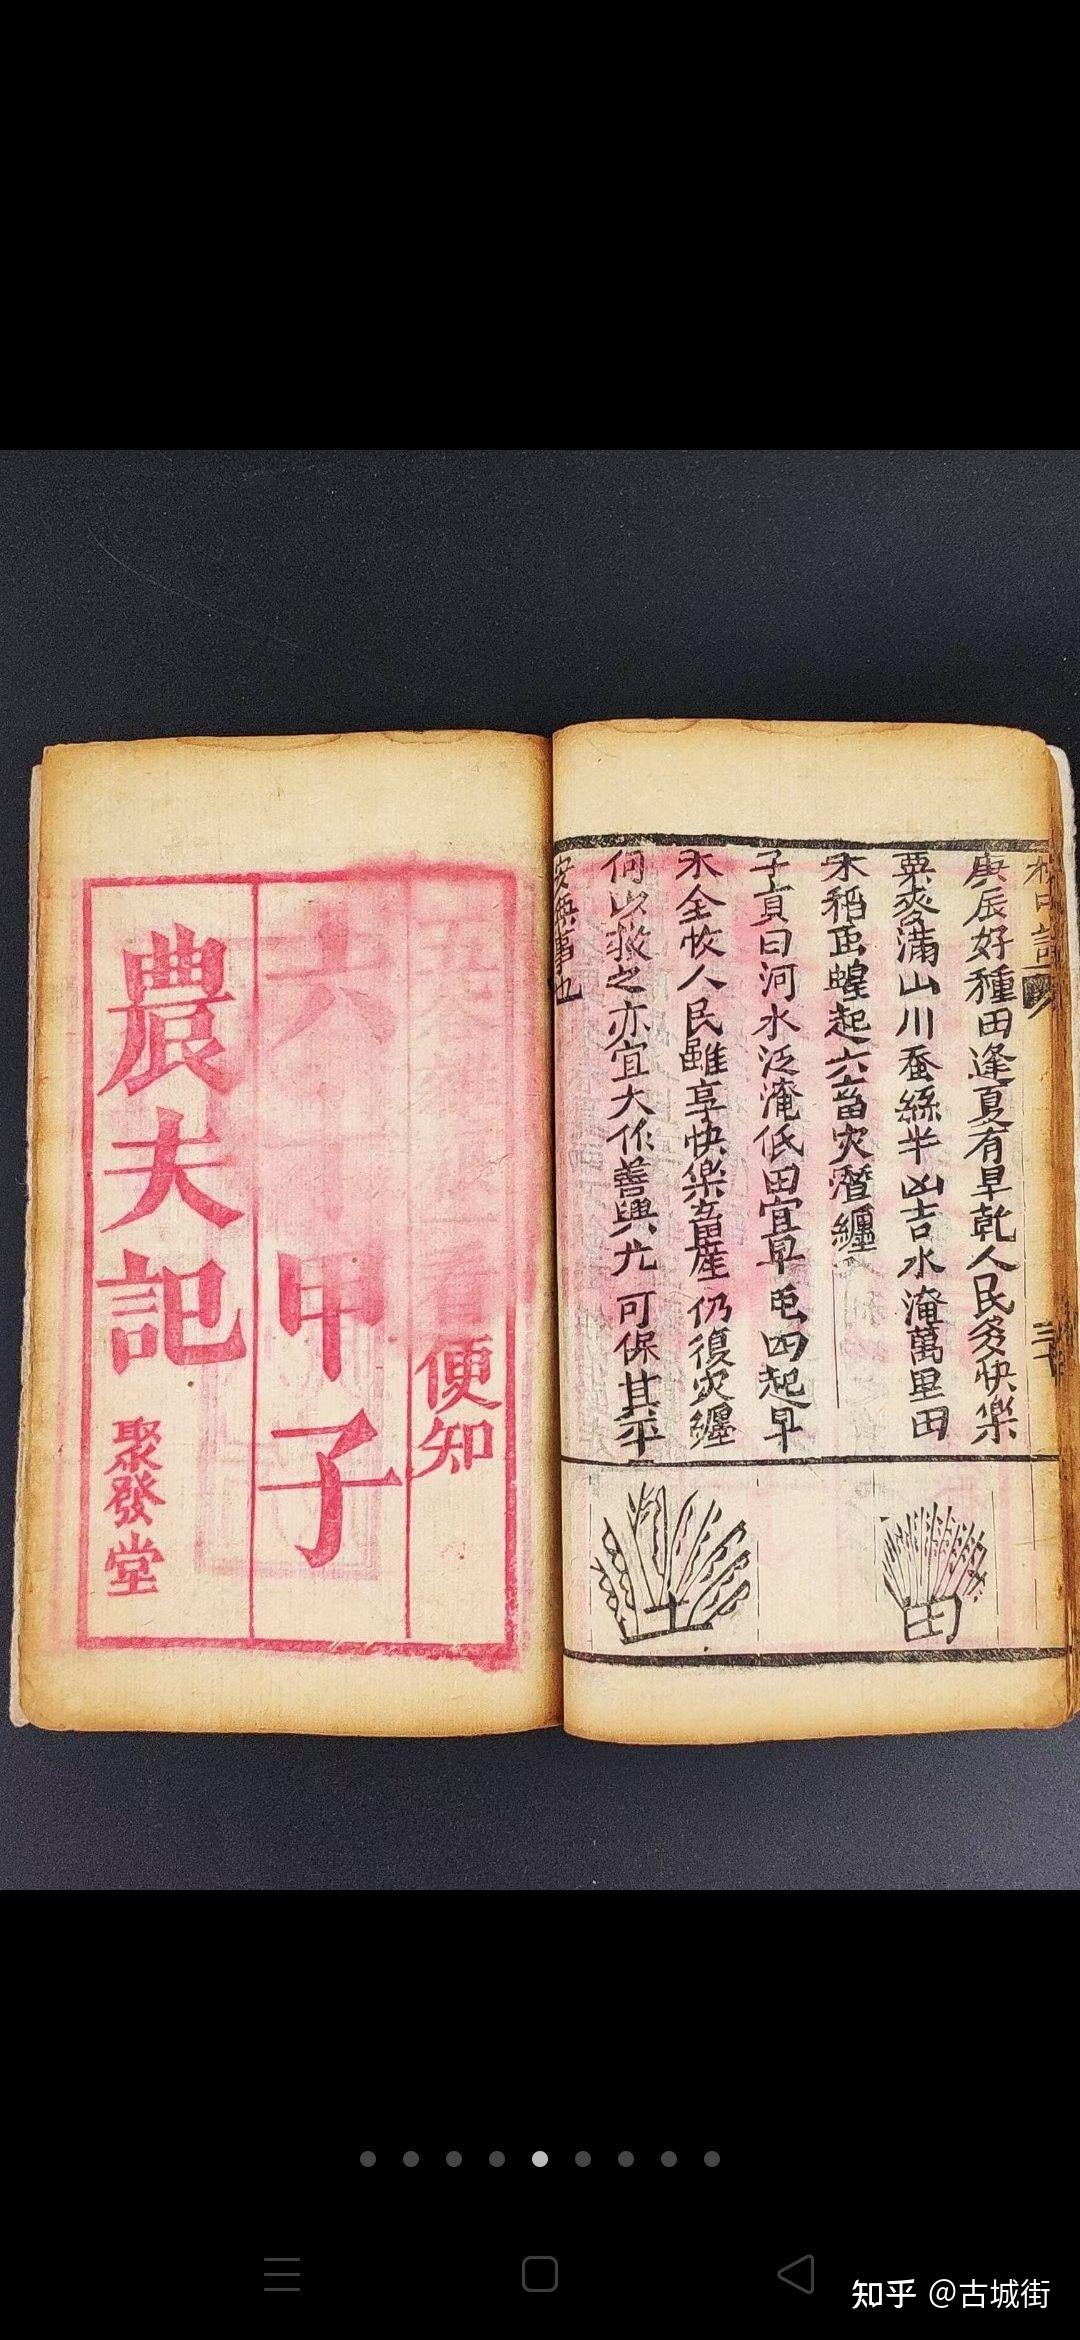 庚辰好種田逢夏有旱乾人民多快樂
粟麥滿山川蚕絲半凶吉水淹萬里田
禾稻虫蝗起六畜灾潛纏
子貢曰河水泛淹低田宜早 四起早
禾全收人民雖享快樂畜產仍復灾纏
何以救之亦宜大作善興尤可保其平
安無事也
三十
田
便知
六十甲子
農夫記
聚發堂
知乎 @古城街